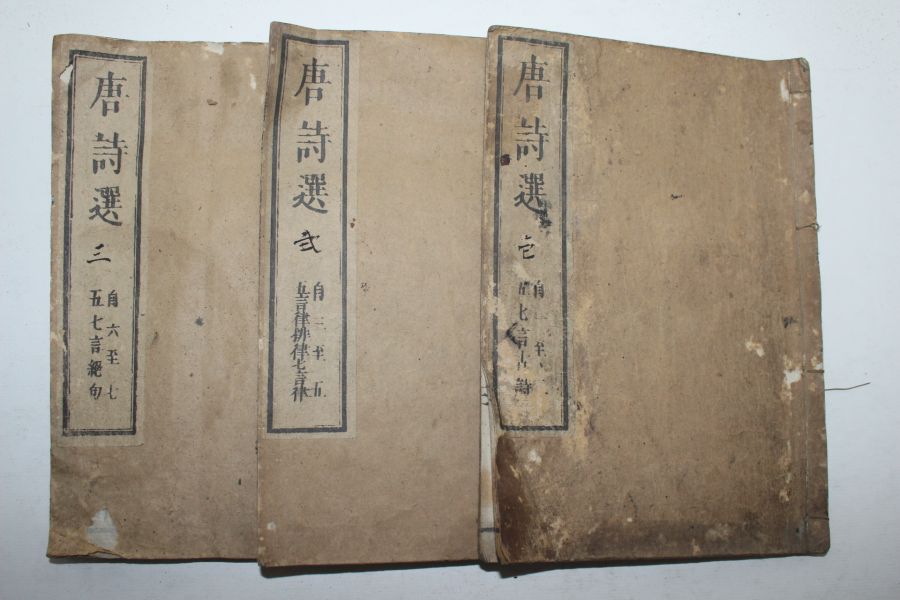 唐詩選
自一至
五七言古詩
唐詩選 弍
自三至五
五言律排律七言律
唐詩選 三
自六至七
五七言絕句